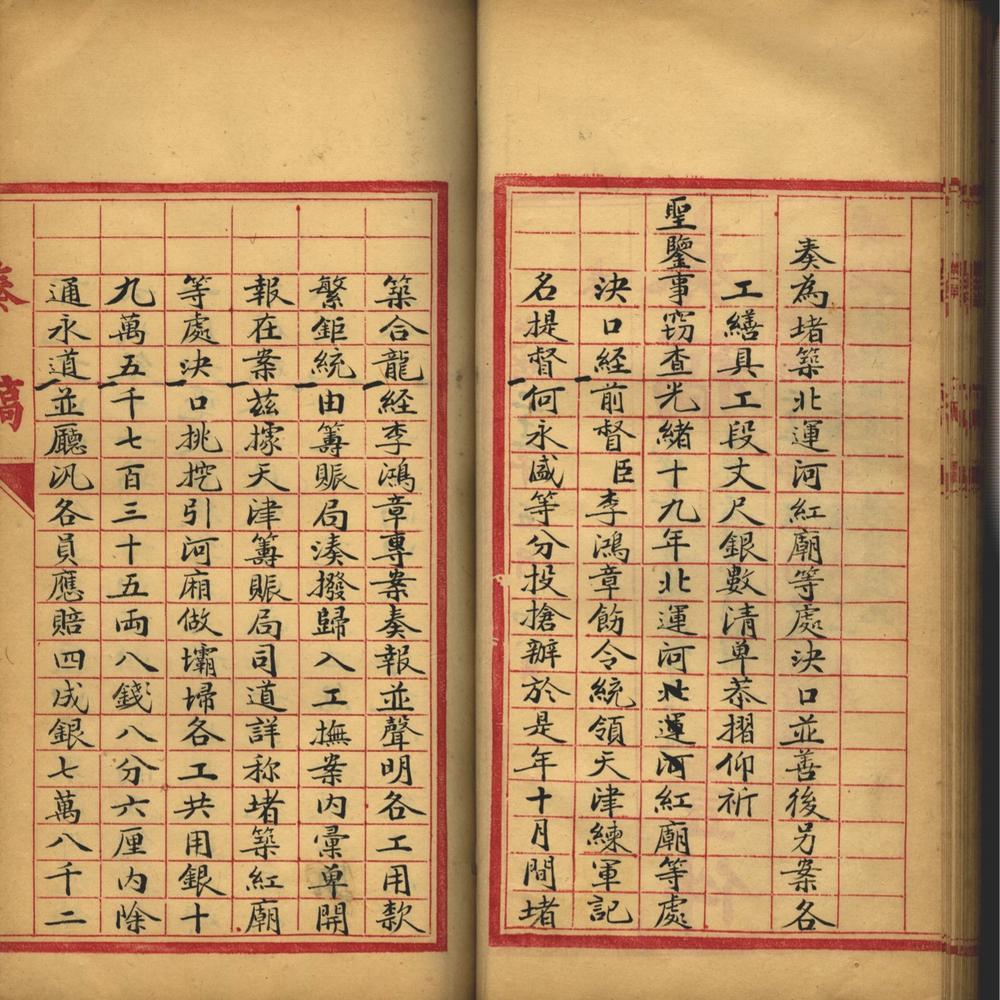 奏為堵築北運河紅廟等處決口並善後另案各
工繕具工段丈尺銀數清單恭摺仰祈
聖鑒事竊查光緒十九年北運河北運河紅廟等處
決口經前督臣李鴻章飭令統領天津練軍記
名提督何永盛等分投搶辦於是年十月間堵
築合龍經李鴻章專案奏報並聲明各工用款
繁鉅統由籌賑局湊撥歸入工撫案內彙單開
報在案茲據天津籌賑局司道詳称堵築紅廟
等處決口挑挖引河廂做壩埽各工共用銀十
九萬五千七百三十五両八錢八分六厘內除
通永道並廳汛各員應賠四成銀七萬八千二
奏稿